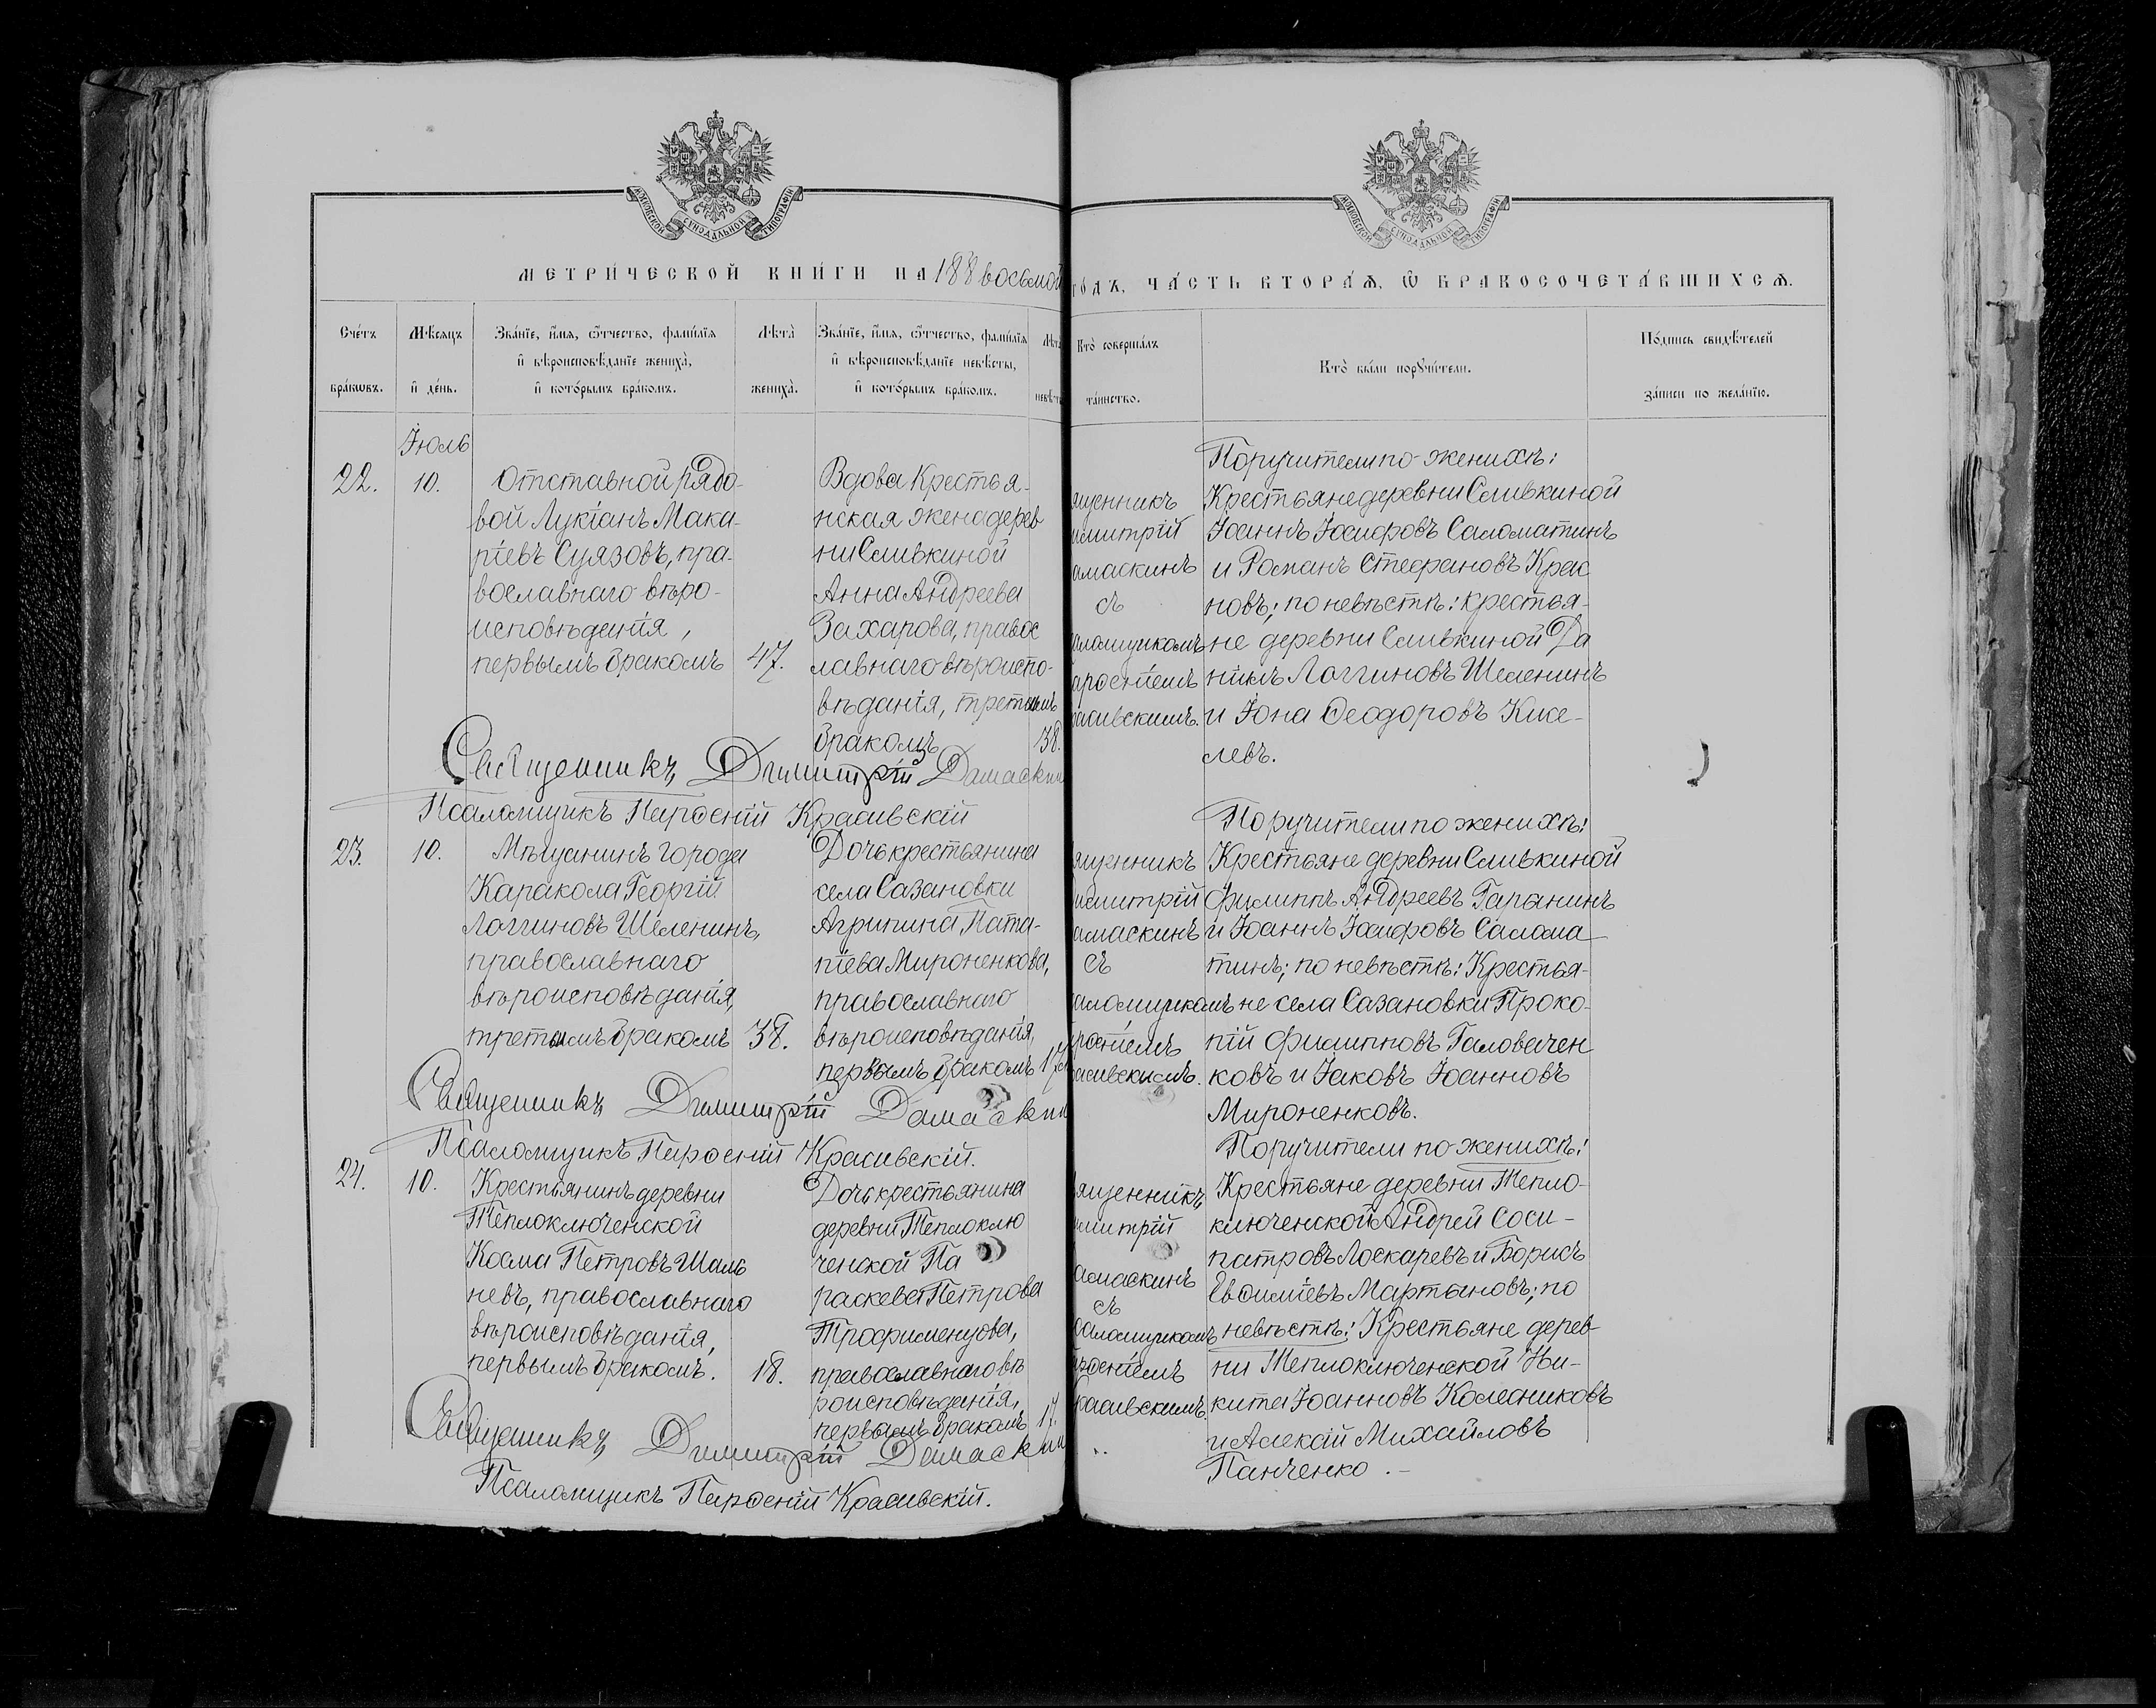 МОСКОВСКОЙ СѴНОДАЛЬНОЙ ТИПОГРАФІИ
МОСКОВСКОЙ СѴНОДАЛЬНОЙ ТИПОГРАФІИ
МЕТРИ́ЧЕСКОЙ КНИ́ГИ НА 188 восьмой
го́дъ, ЧА́СТЬ ВТОРА́Ѧ, Ѽ БРАКОСОЧЕТА́ВШИХСѦ.
Сче́тъ
бра́кѡвъ.
Мѣ́сяцъ
и҆ де́нь.
Зва́нїе, и҆́мѧ, ѻ҆́тчество, фами́лїѧ
и҆ вѣроисповѣ́данїе жениха̀,
и҆ кото́рымъ бра́комъ.
Лѣта̀
жениха̀.
Зва́нїе, и҆́мѧ, ѻ҆́тчество, фами́лїѧ
и҆ вѣроисповѣ́данїе невѣ́сты,
и҆ кото́рымъ бра́комъ.
Лѣта̀
невѣ́сты
Кто̀ соверша́лъ
та́инство.
Кто̀ бы́ли порꙋчи́тели.
По́дпись свидѣ́телей
за́писи по жела́нїю.
Іюль
22.
10.
Отставной рядо-
вой Лукіанъ Мака-
ріевъ Суязовъ, пра-
вославнаго вѣро-
исповѣданія,
первымъ бракомъ
47.
Вдова Крестья-
нская жена дерев
ни Сливкиной
Анна Андреева
Захарова, правос
лавнаго вѣроиспо-
вѣданія, третьимъ
бракомъ
38.
ященникъ
имитрій
амаскинъ
съ
аломщикомъ
арѳеніемъ
расивскимъ.
Поручители по женихѣ:
Крестьяне деревни Сливкиной
Іоаннъ Іосифовъ Саломатинъ
и Романъ Стефановъ Крас
новъ; по невѣстѣ: крестья-
не деревни Сливкиной Да
ніилъ Логгиновъ Шеленинъ
и Іона Ѳеодоровъ Кисе-
левъ.
Священникъ Димитрій Дамаскин
Псаломщикъ Парѳеній Красивскій
23.
10.
Мѣщанинъ города
Каракола Георгій
Логгиновъ Шеленинъ,
православнаго
вѣроисповѣданія,
третьимъ бракомъ
38.
Дочь крестьянина
села Сазановки
Агрипина Пата-
піева Мироненкова,
православнаго
вѣроисповѣданія,
первымъ бракомъ
17
ященникъ
имитрій
амаскинъ
съ
аломщикомъ
рѳеніемъ
расивскимъ.
Поручители по женихѣ:
Крестьяне деревни Сливкиной
Филиппъ Андреевъ Гаранинъ
и Іоаннъ Іосифовъ Салома
тинъ; по невѣстѣ: Крестья-
не села Сазановки Проко-
пій Филипповъ Галовачен
ковъ и Іаковъ Іоанновъ
Мироненковъ.
Священникъ Димитрій Дамаскин
Псаломщикъ Парѳеній Красивскій.
24.
10.
Крестьянинъ деревни
Теплоключенской
Косма Петровъ Шаль
невъ, православнаго
вѣроисповѣданія,
первымъ бракомъ.
18.
Дочь крестьянина
деревни Теплоклю
ченской Па
раскева Петрова
Трофименцова,
православнаго вѣ
роисповѣданія,
первымъ бракомъ
17.
ященникъ
имитрій
амаскинъ
съ
аломщикомъ
рѳеніемъ
расивскимъ.
Поручители по женихѣ:
Крестьяне деревни Тепло-
ключенской Андрей Соси-
патровъ Лоскаревъ и Борисъ
Евѳиміевъ Мартыновъ; по
невѣстѣ: Крестьяне дерев
ни Теплоключенской Ни-
кита Іоанновъ Колесниковъ
и Алексій Михайловъ
Панченко.
Священникъ Димитрій Дамаскин
Псаломщикъ Парѳеній Красивскій.